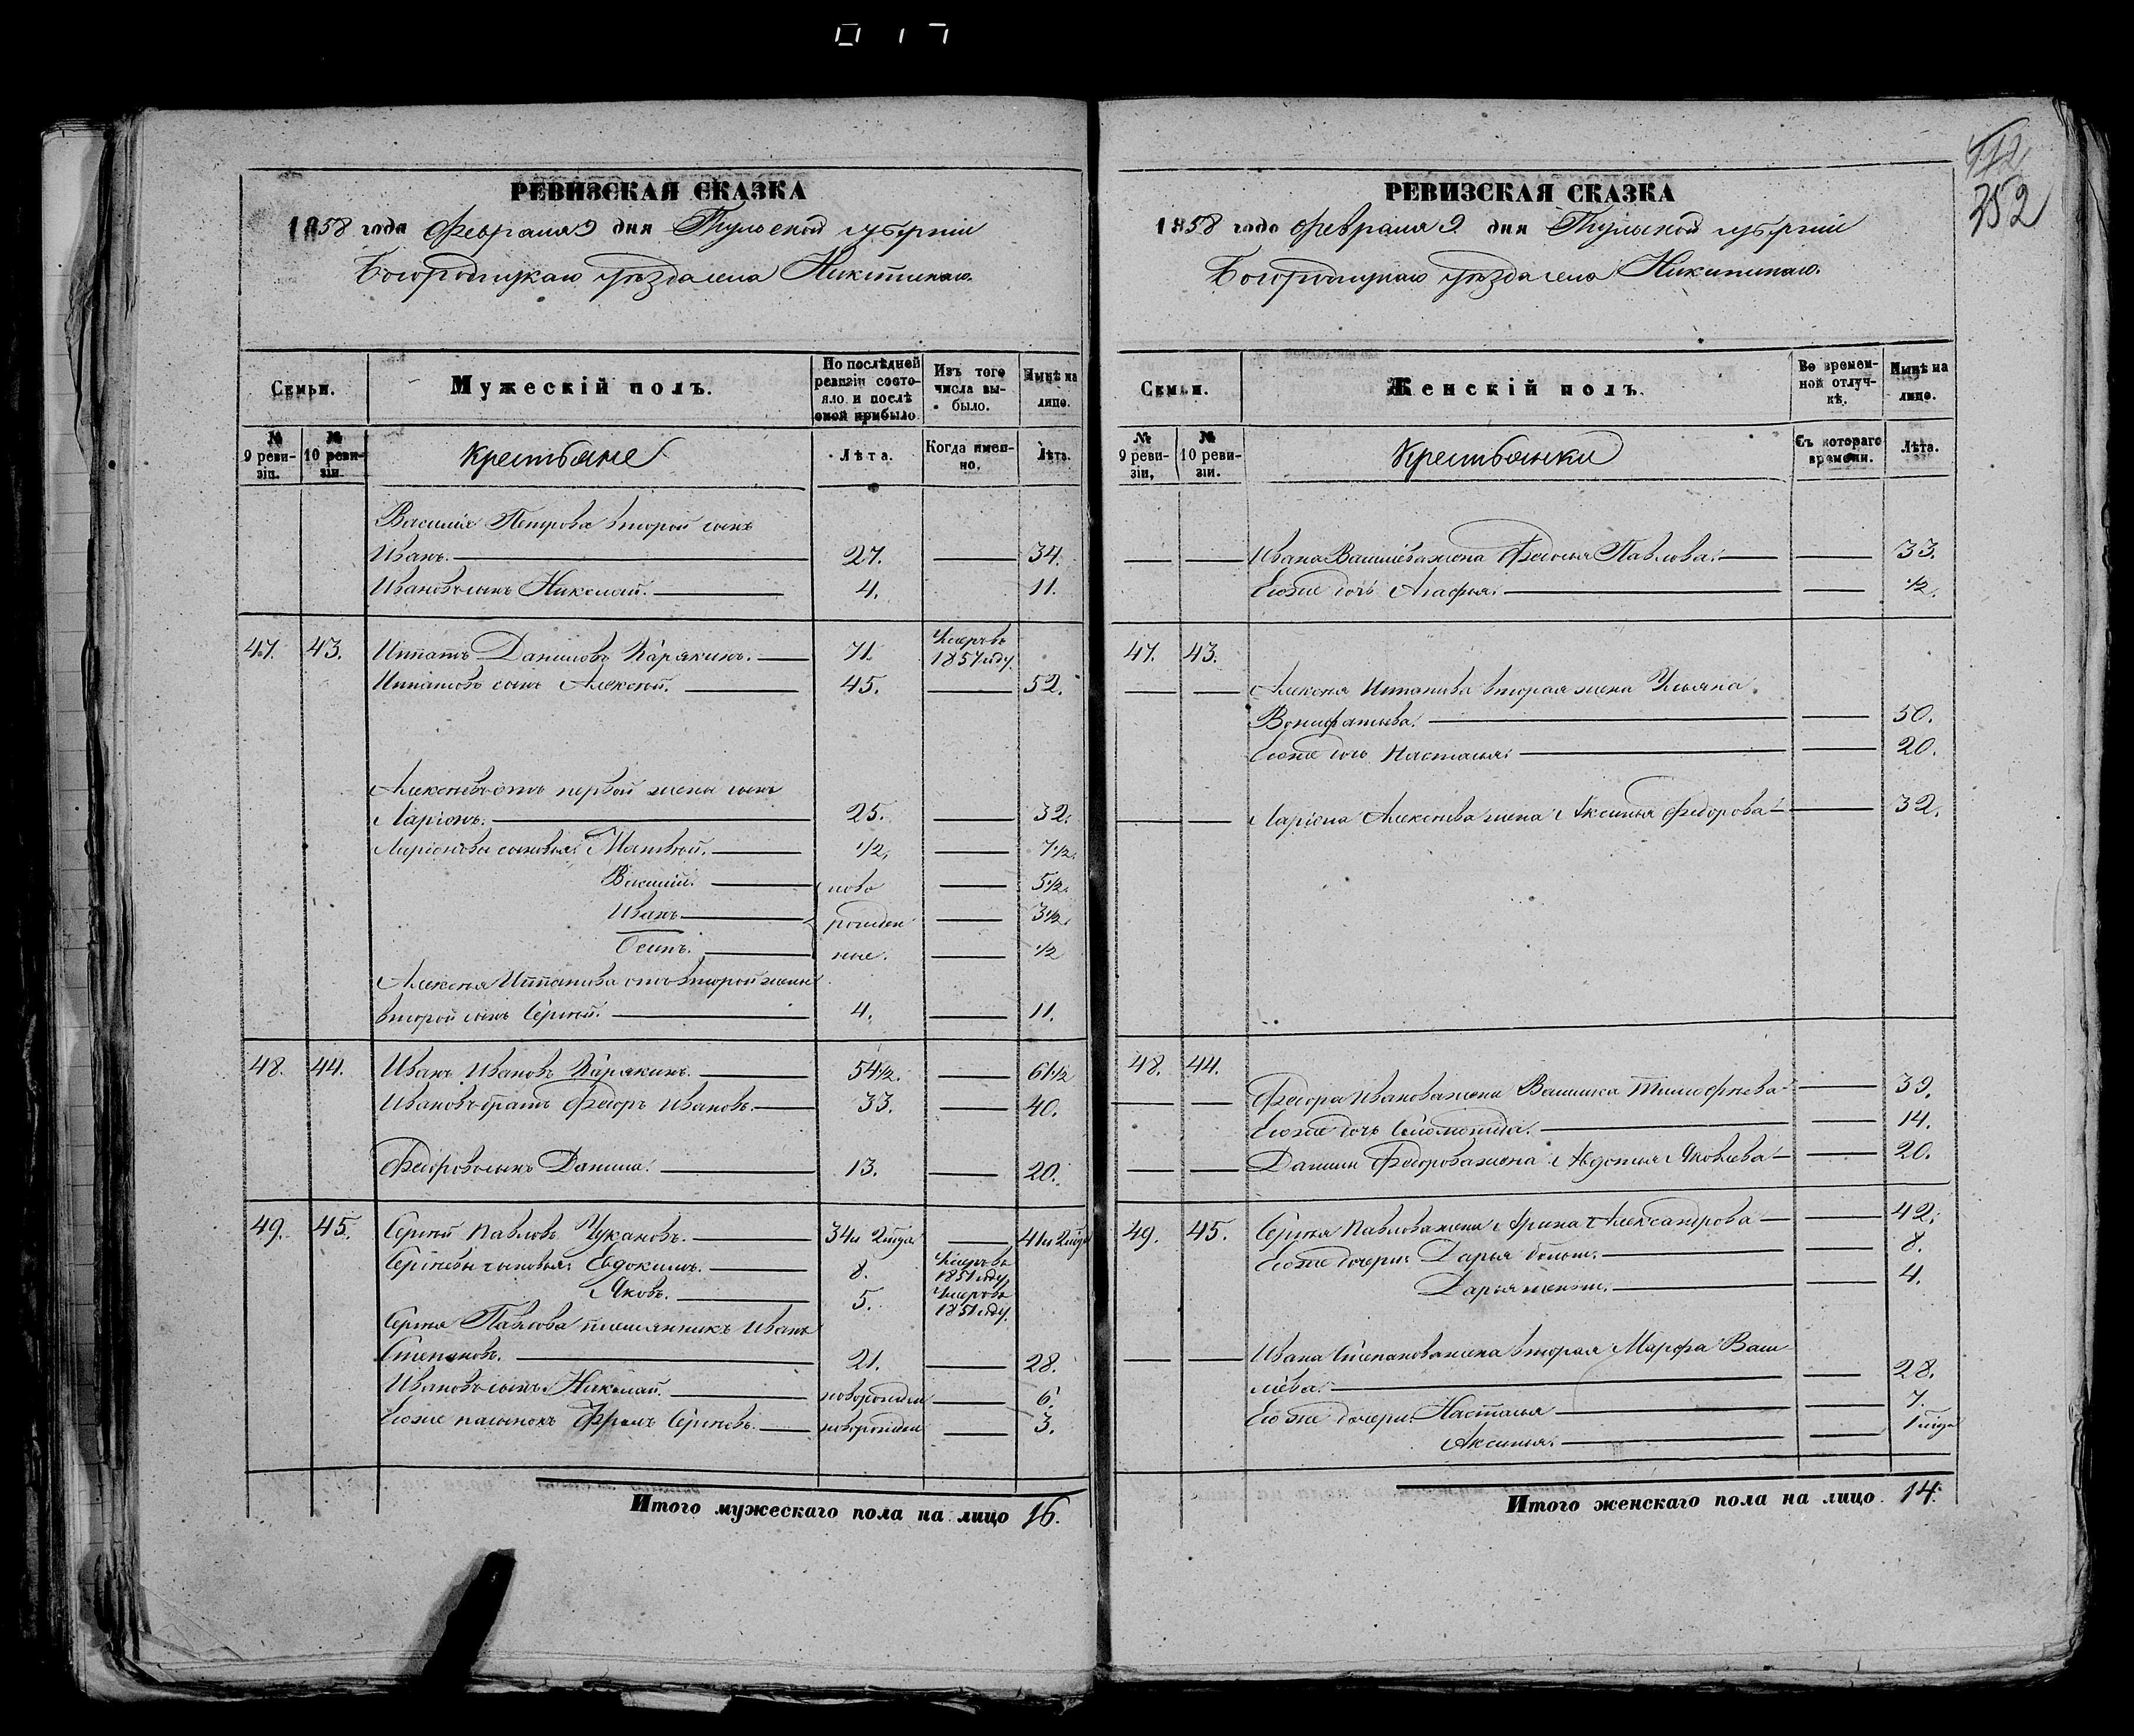 017
РЕВИЗСКАЯ СКАЗКА
1858 года Февраля 9 дня Тульской губерніи
Богородицкаго уѣзда села Никитинаго.
Семьи.
Мужескій полъ.
По послѣдней ревизіи состояло и послѣ оной прибыло
Изъ того числа выбыло.
Нынѣ на лицо.
№ 9 ревизіи.
№ 10 ревизіи.
Крестьяне
Лѣта.
Когда именно.
Лѣта.
Василія Петрова второй сынъ
Иванъ. 27. 34.
Ивановъ сынъ Николай. 4. 11.
47. 43. Ипатъ Даниловъ Карякинъ. 71. Умеръ въ 1857 году.
Ипатовъ сынъ Алексѣй. 45. 52.
Алексѣевъ отъ первой жены сынъ
Ларіонъ. 25. 32.
Ларіоновы сыновья: Матвѣй. 1/2. 7 1/2.
Василій. ново 5 1/2.
Иванъ рожден 3 1/2.
Осипъ. ные. 1/2
Алексѣя Ипатова отъ второй жены
второй сынъ Сергѣй. 4. 11.
48. 44. Иванъ Ивановъ Карякинъ. 54 1/2. 61 1/2
Ивановъ братъ Федоръ Ивановъ. 33. 40.
Федоровъ сынъ Данила. 13. 20.
49. 45. Сергѣй Павловъ Чукановъ. 34 и 2 года 41 и 2 года
Сергѣевы сыновья: Евдокимъ. 8. Умеръ въ 1851 году.
Яковъ. 5. Умеръ въ 1851 году.
Сергѣя Павлова племянникъ Иванъ
Степановъ. 21. 28.
Ивановъ сынъ Николай. новорожден 6.
Его же пасынокъ Фролъ Сергѣевъ. новорожден 3.
Итого мужескаго пола на лицо 16.
352
РЕВИЗСКАЯ СКАЗКА
1858 года Февраля 9 дня Тульской губерніи
Богородицкаго уѣзда села Никитинаго.
Семьи.
Женскій полъ.
Во временной отлучкѣ.
Нынѣ на лицо.
№ 9 ревизіи,
№ 10 ревизіи.
Крестьянки
Съ котораго времени.
Лѣта.
Ивана Васильева жена Федосья Павлова. 33.
Его же дочь Агафья. 1/2.
47. 43.
Алексѣя Ипатова вторая жена Ульяна
Вонифатьева. 50.
Его же дочь Настасья. 20.
Ларіона Алексѣева жена Аксинья Федорова 32.
48. 44.
Федора Иванова жена Василиса Тимофѣева 39.
Его же дочь Соломонида. 14.
Данилы Федорова жена Авдотья Яковлева 20.
49. 45. Сергѣя Павлова жена Арина Александрова 42.
Его же дочери: Дарья больш. 8.
Дарья меньш. 4.
Ивана Степанова жена вторая Марфа Васи
льева. 28.
Его же дочери: Настасья 7.
Аксинья. 1 года
Итого женскаго пола на лицо. 14.